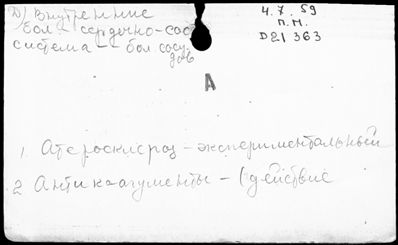 Д) Внутренние
бол - сердечно-сос
система - бол сосу-
дов
4.7.59
П.М.
D21363
А
1. Атеросклероз - экспериментальный
2 Антикоагументы - (действие